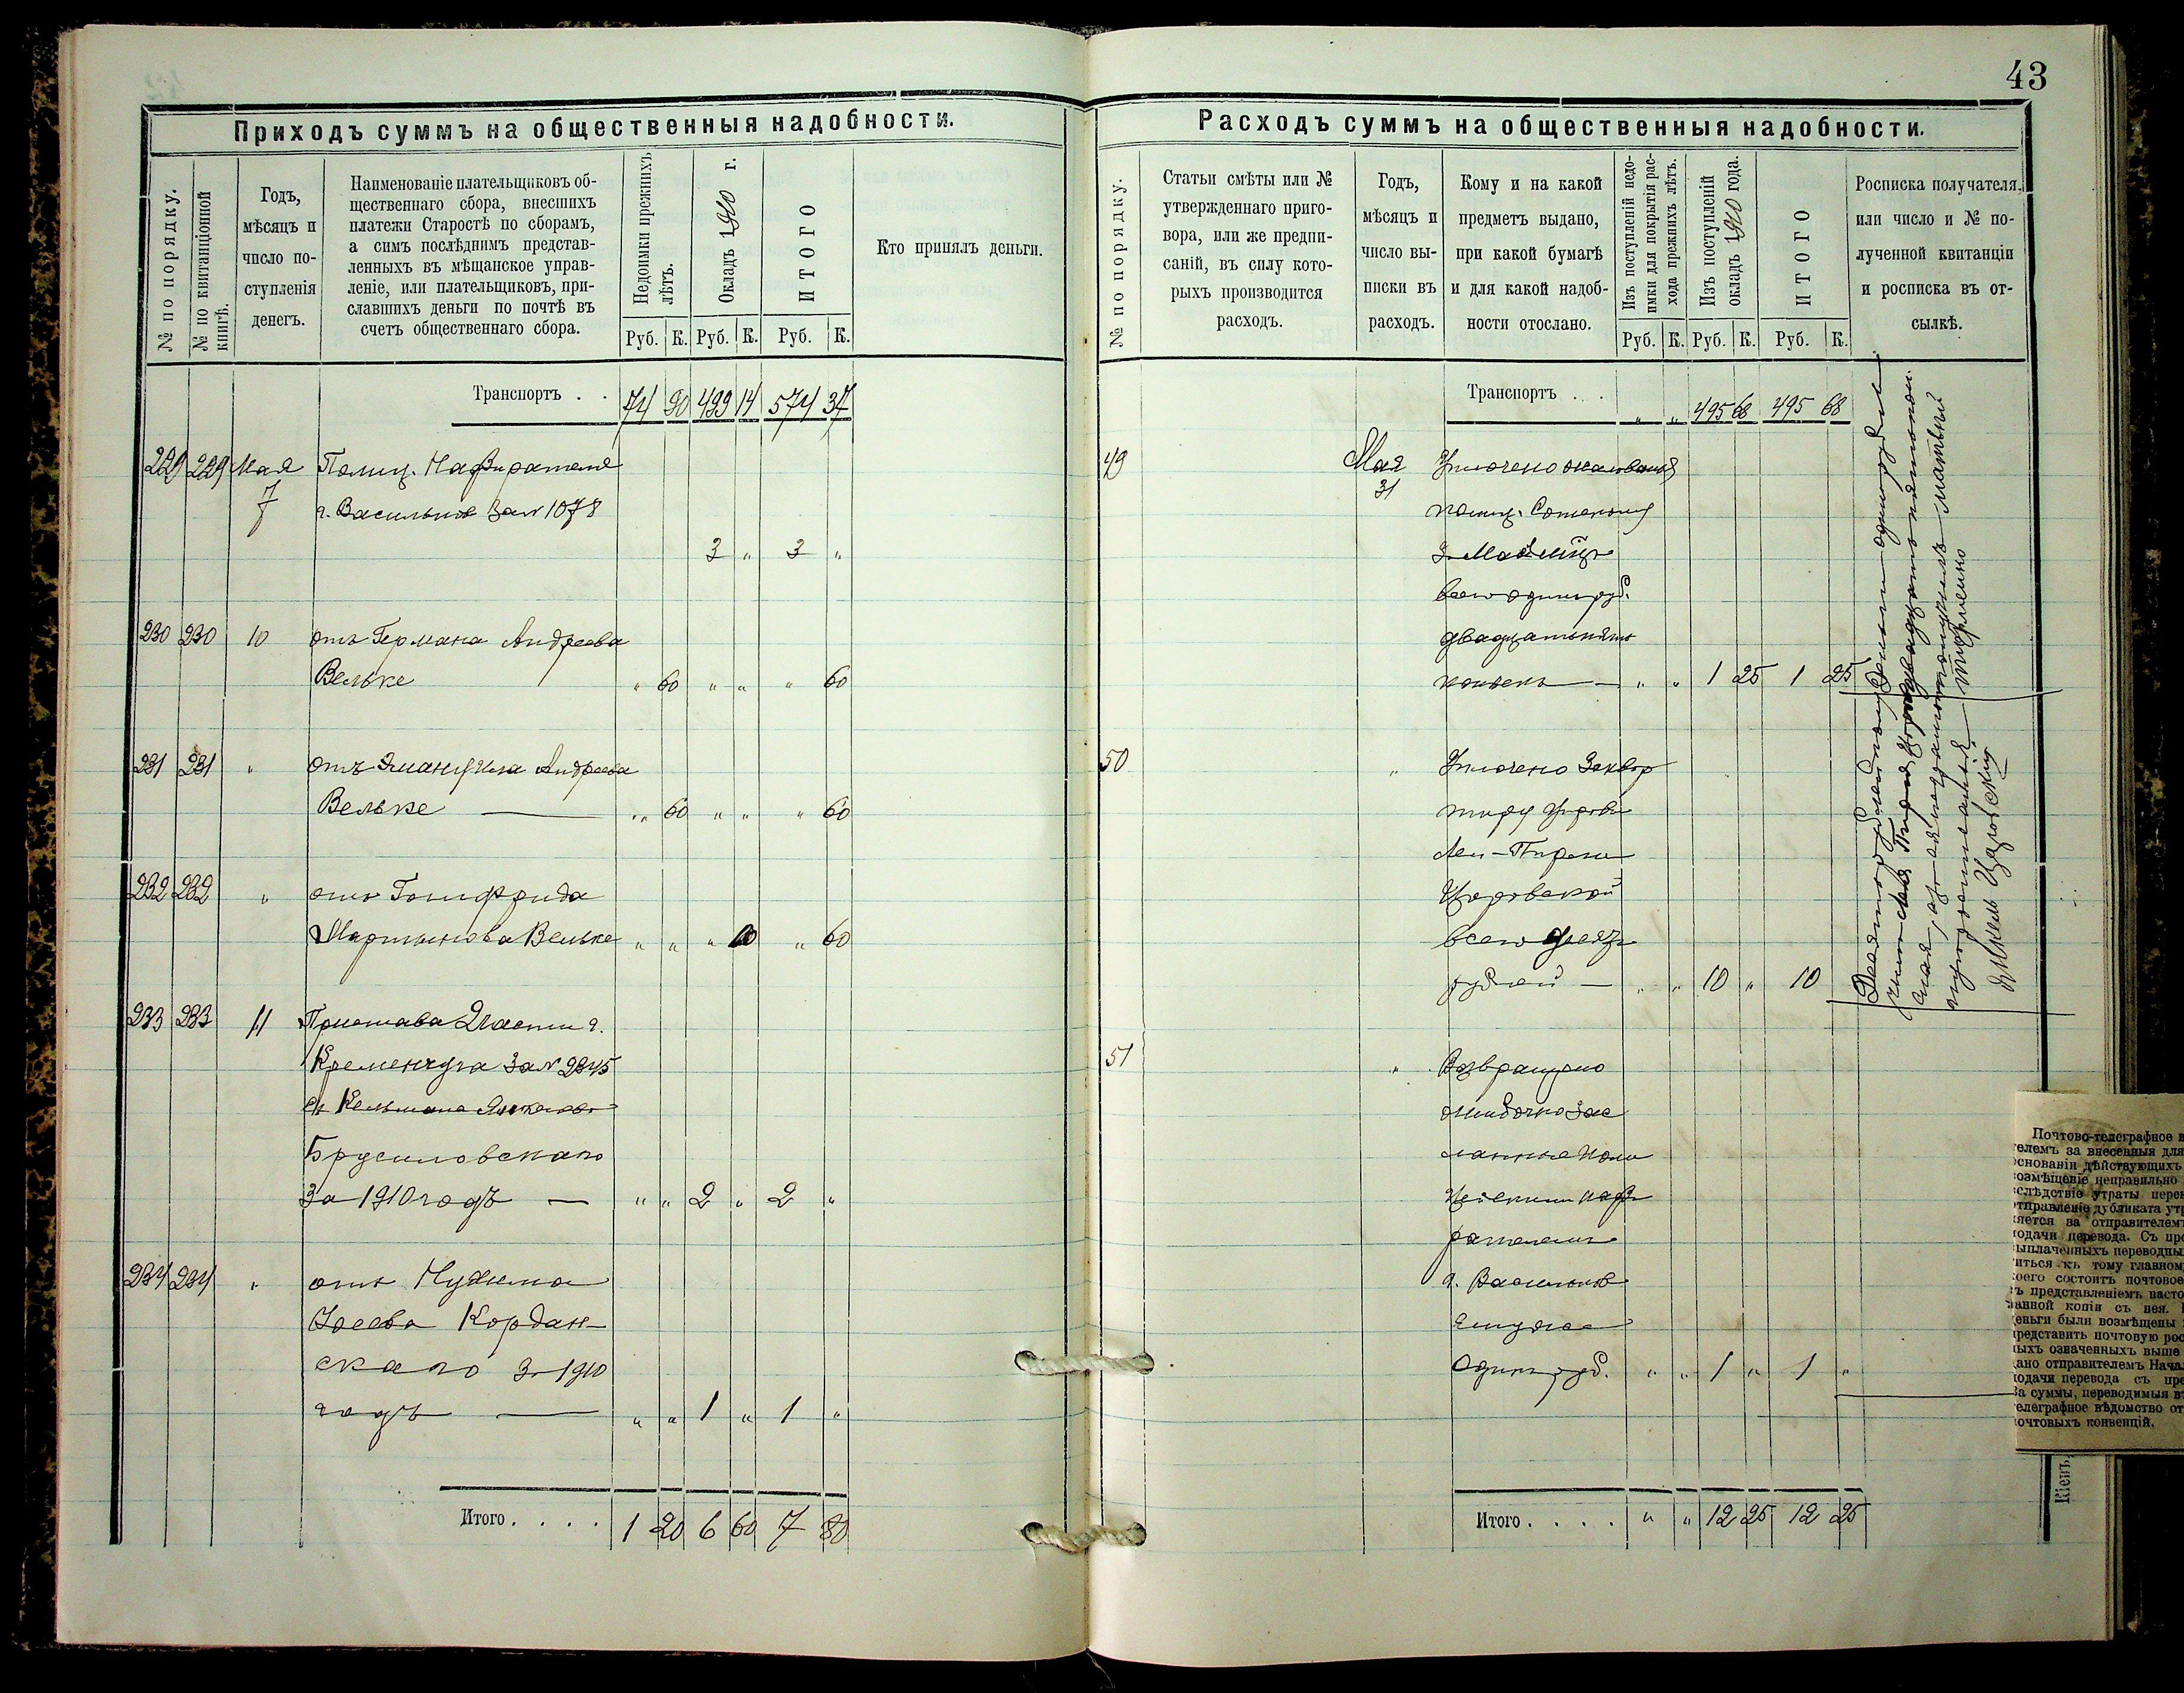 43
Приходъ суммъ на общественныя надобности.
№ по порядку.
№ по квитанціонной книгѣ.
Годъ,
мѣсяцъ и
число по-
ступленія
денегъ.
Наименованіе плательщиковъ об-
щественнаго сбора, внесшихъ
платежи Старостѣ по сборамъ,
а симъ послѣднимъ представ-
ленныхъ въ мѣщанское управ-
леніе, или плательщиковъ, при-
славшихъ деньги по почтѣ въ
счетъ общественнаго сбора.
Недоимки прежнихъ
лѣтъ.
Окладъ 1910 г.
ИТОГО
Кто принялъ деньги.
Руб. К. Руб. К. Руб. К.
Транспортъ . . 74 90 499 14 574 37
229 229 Мая Полиц. Надзирателя
7 г. Василькова за № 1078
3 " 3 "
230 230 10 отъ Германа Андреева
Вельке " 60 " " " 60
231 231 " отъ Эмануила Андреева
Вельке — " 60 " " " 60
232 232 " отъ Готфрида
Мартынова Вельке " " " 60 " 60
233 233 11 Пристава 2 части г.
Кременчуга за № 2345
съ Кельмана
Брусиловскаго
За 1910 годъ — " " 2 " 2 "
234 234 " отъ Нухима
Іосева Кордан-
скаго з 1910
годъ — " " 1 " 1 "
Итого . . . . 1 20 6 60 7 80
Расходъ суммъ на общественныя надобности.
№ по порядку.
Статьи смѣты или №
утвержденнаго приго-
вора, или же предпи-
саній, въ силу кото-
рыхъ производится
расходъ.
Годъ,
мѣсяцъ и
число вы-
писки въ
расходъ.
Кому и на какой
предметъ выдано,
при какой бумагѣ
и для какой надоб-
ности отослано.
Изъ поступленій недо-
имки для покрытія рас-
хода прежнихъ лѣтъ.
Изъ поступленій
окладъ 1910 года.
ИТОГО
Росписка получателя,
или число и № по-
лученной квитанціи
и росписка въ от-
сылкѣ.
Руб. К. Руб. К. Руб. К.
Транспортъ . . . " " 495 68 495 68
49 Мая Уплочено жалованья
31 полиц. Сотскому
з Май мѣц
всего одинъ руб.
двадцать пять
копѣекъ — " " 1 25 1 25
50 " Уплочено За квар
тиру
Леи-Перли
Цоровской
всего десять
рублей — " " 10 " 10
51 " Возвращено
ошибочно зас
ланные Поли
цейскимъ надзи
рателемъ
г. Васильков
Одинъ руб. " " 1 " 1 "
Итого . . . . " " 12 25 12 25
Почтово-телеграфное в
елемъ за внесенныя для
основаніи дѣйствующихъ
возмѣщеніе неправильно
слѣдствіе утраты перев
тправленіе дубликата утр
ляется за отправителемъ
одачи перевода. Съ пре
ыплаченныхъ переводны
иться къ тому главном
оего состоитъ почтовое
ъ представленіемъ насто
анной копіи съ нея.
еньги были возмѣщены
редставить почтовую рос
ыхъ означенныхъ выше
ано отправителемъ Нача
одачи перевода съ пре
а суммы, переводимыя в
елеграфное вѣдомство от
очтовыхъ конвенцій.
Кіевъ,